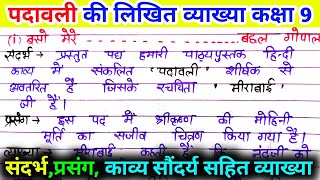 पदावली की लिखित व्याख्या कक्षा 9
(i) बसो मेरे ------ बछल गोपाल
संदर्भ → प्रस्तुत पद्य हमारी पाठ्यपुस्तक हिन्दी
काव्य में संकलित 'पदावली' शीर्षक से
अवतरित है जिसके रचयिता 'मीराबाई'
जी हैं।
प्रसंग:- इस पद में श्रीकृष्ण की मोहिनी
मूर्ति का सजीव चित्रण किया गया है।
व्याख्या- मीराबाई कहती हैं कि नंदजी को
संदर्भ,प्रसंग, काव्य सौंदर्य सहित व्याख्या